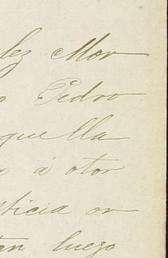 lez Mor
o Pedro
aquella
a á otor
sticia or
tan luego